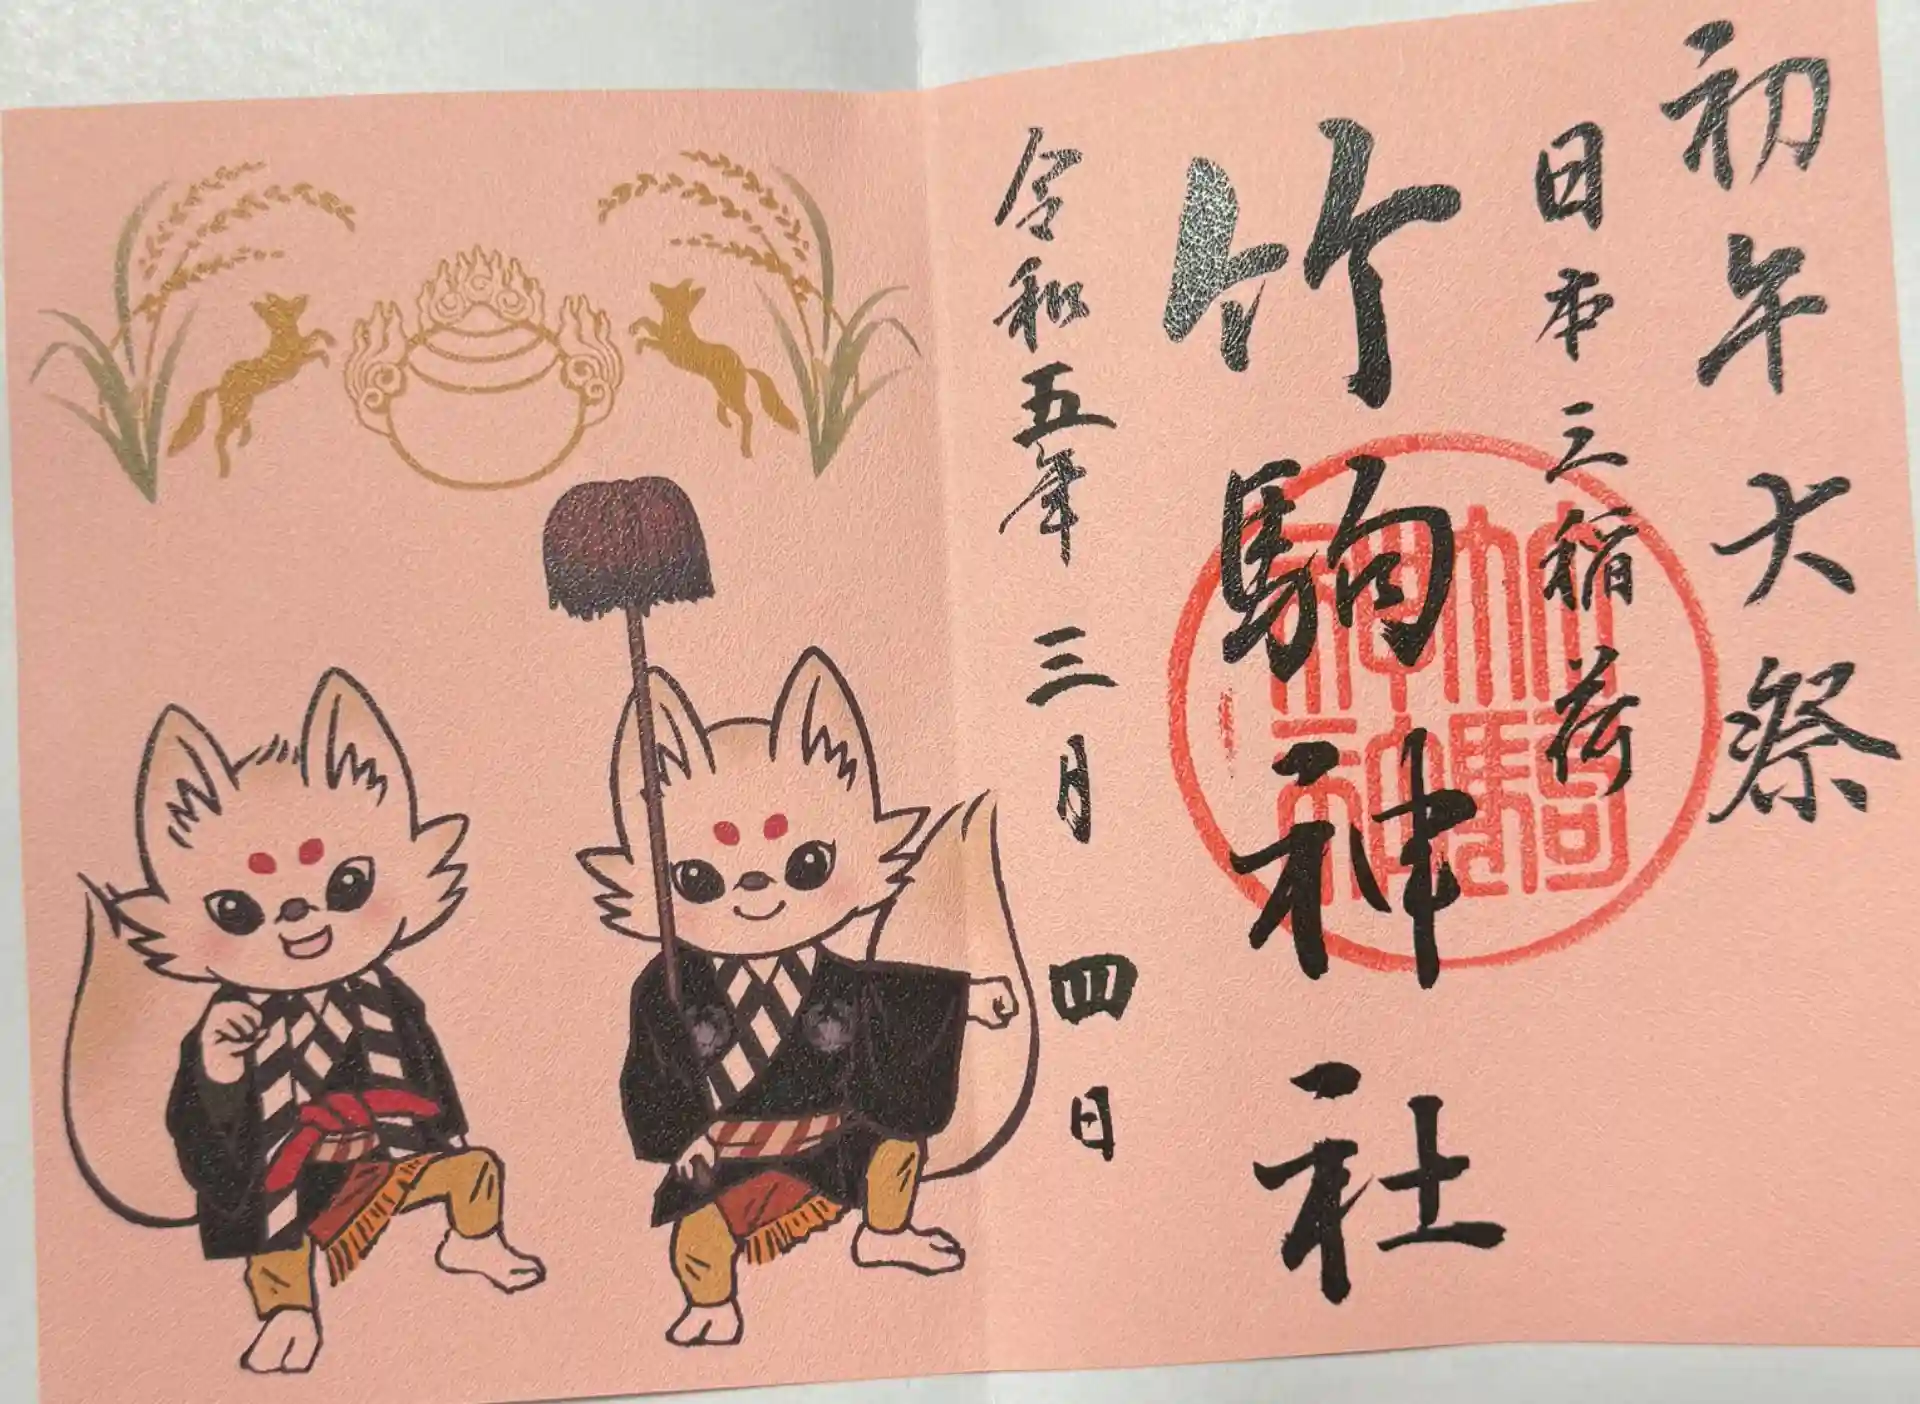 初午大祭
日本三稲荷
竹駒神社
竹駒
神社
令和五年 三月 四日